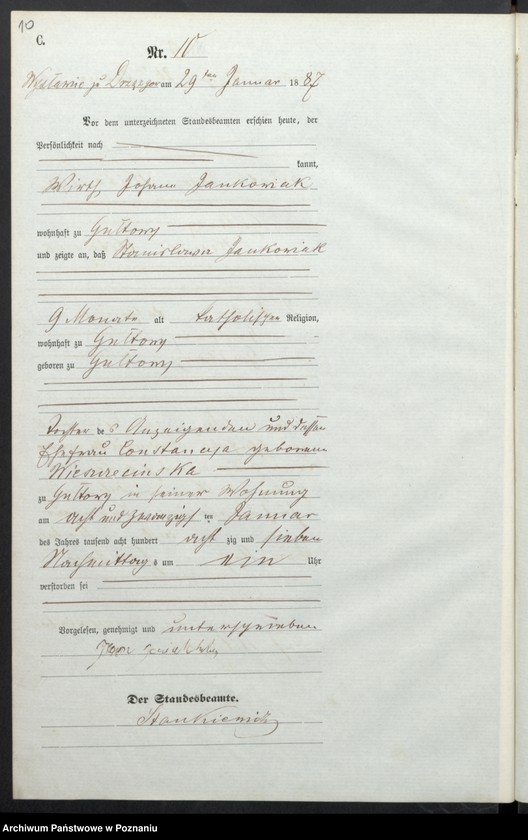 10
C.
Nr. 10
zu am 29ten Januar 1887
Vor dem unterzeichneten Standesbeamten erschien heute, der
Persönlichkeit nach
kannt,
Wirth Johann Jankowiak
wohnhaft zu Gultowy
und zeigte an, daß Stanislawa Jankowiak
9 Monate alt katholischer Religion,
wohnhaft zu Gultowy
geboren zu Gultowy
Tochter des Anzeigenden und dessen
Ehefrau Constancya geborenen
zu Gultowy in seiner Wohnung
am acht und zwanzigsten Januar
des Jahres tausend acht hundert acht zig und sieben
Nachmittags um ein Uhr
verstorben sei
Vorgelesen, genehmigt und unterschrieben
Jan
Der Standesbeamte.
Stankiewicz
Archiwum Państwowe w Poznaniu